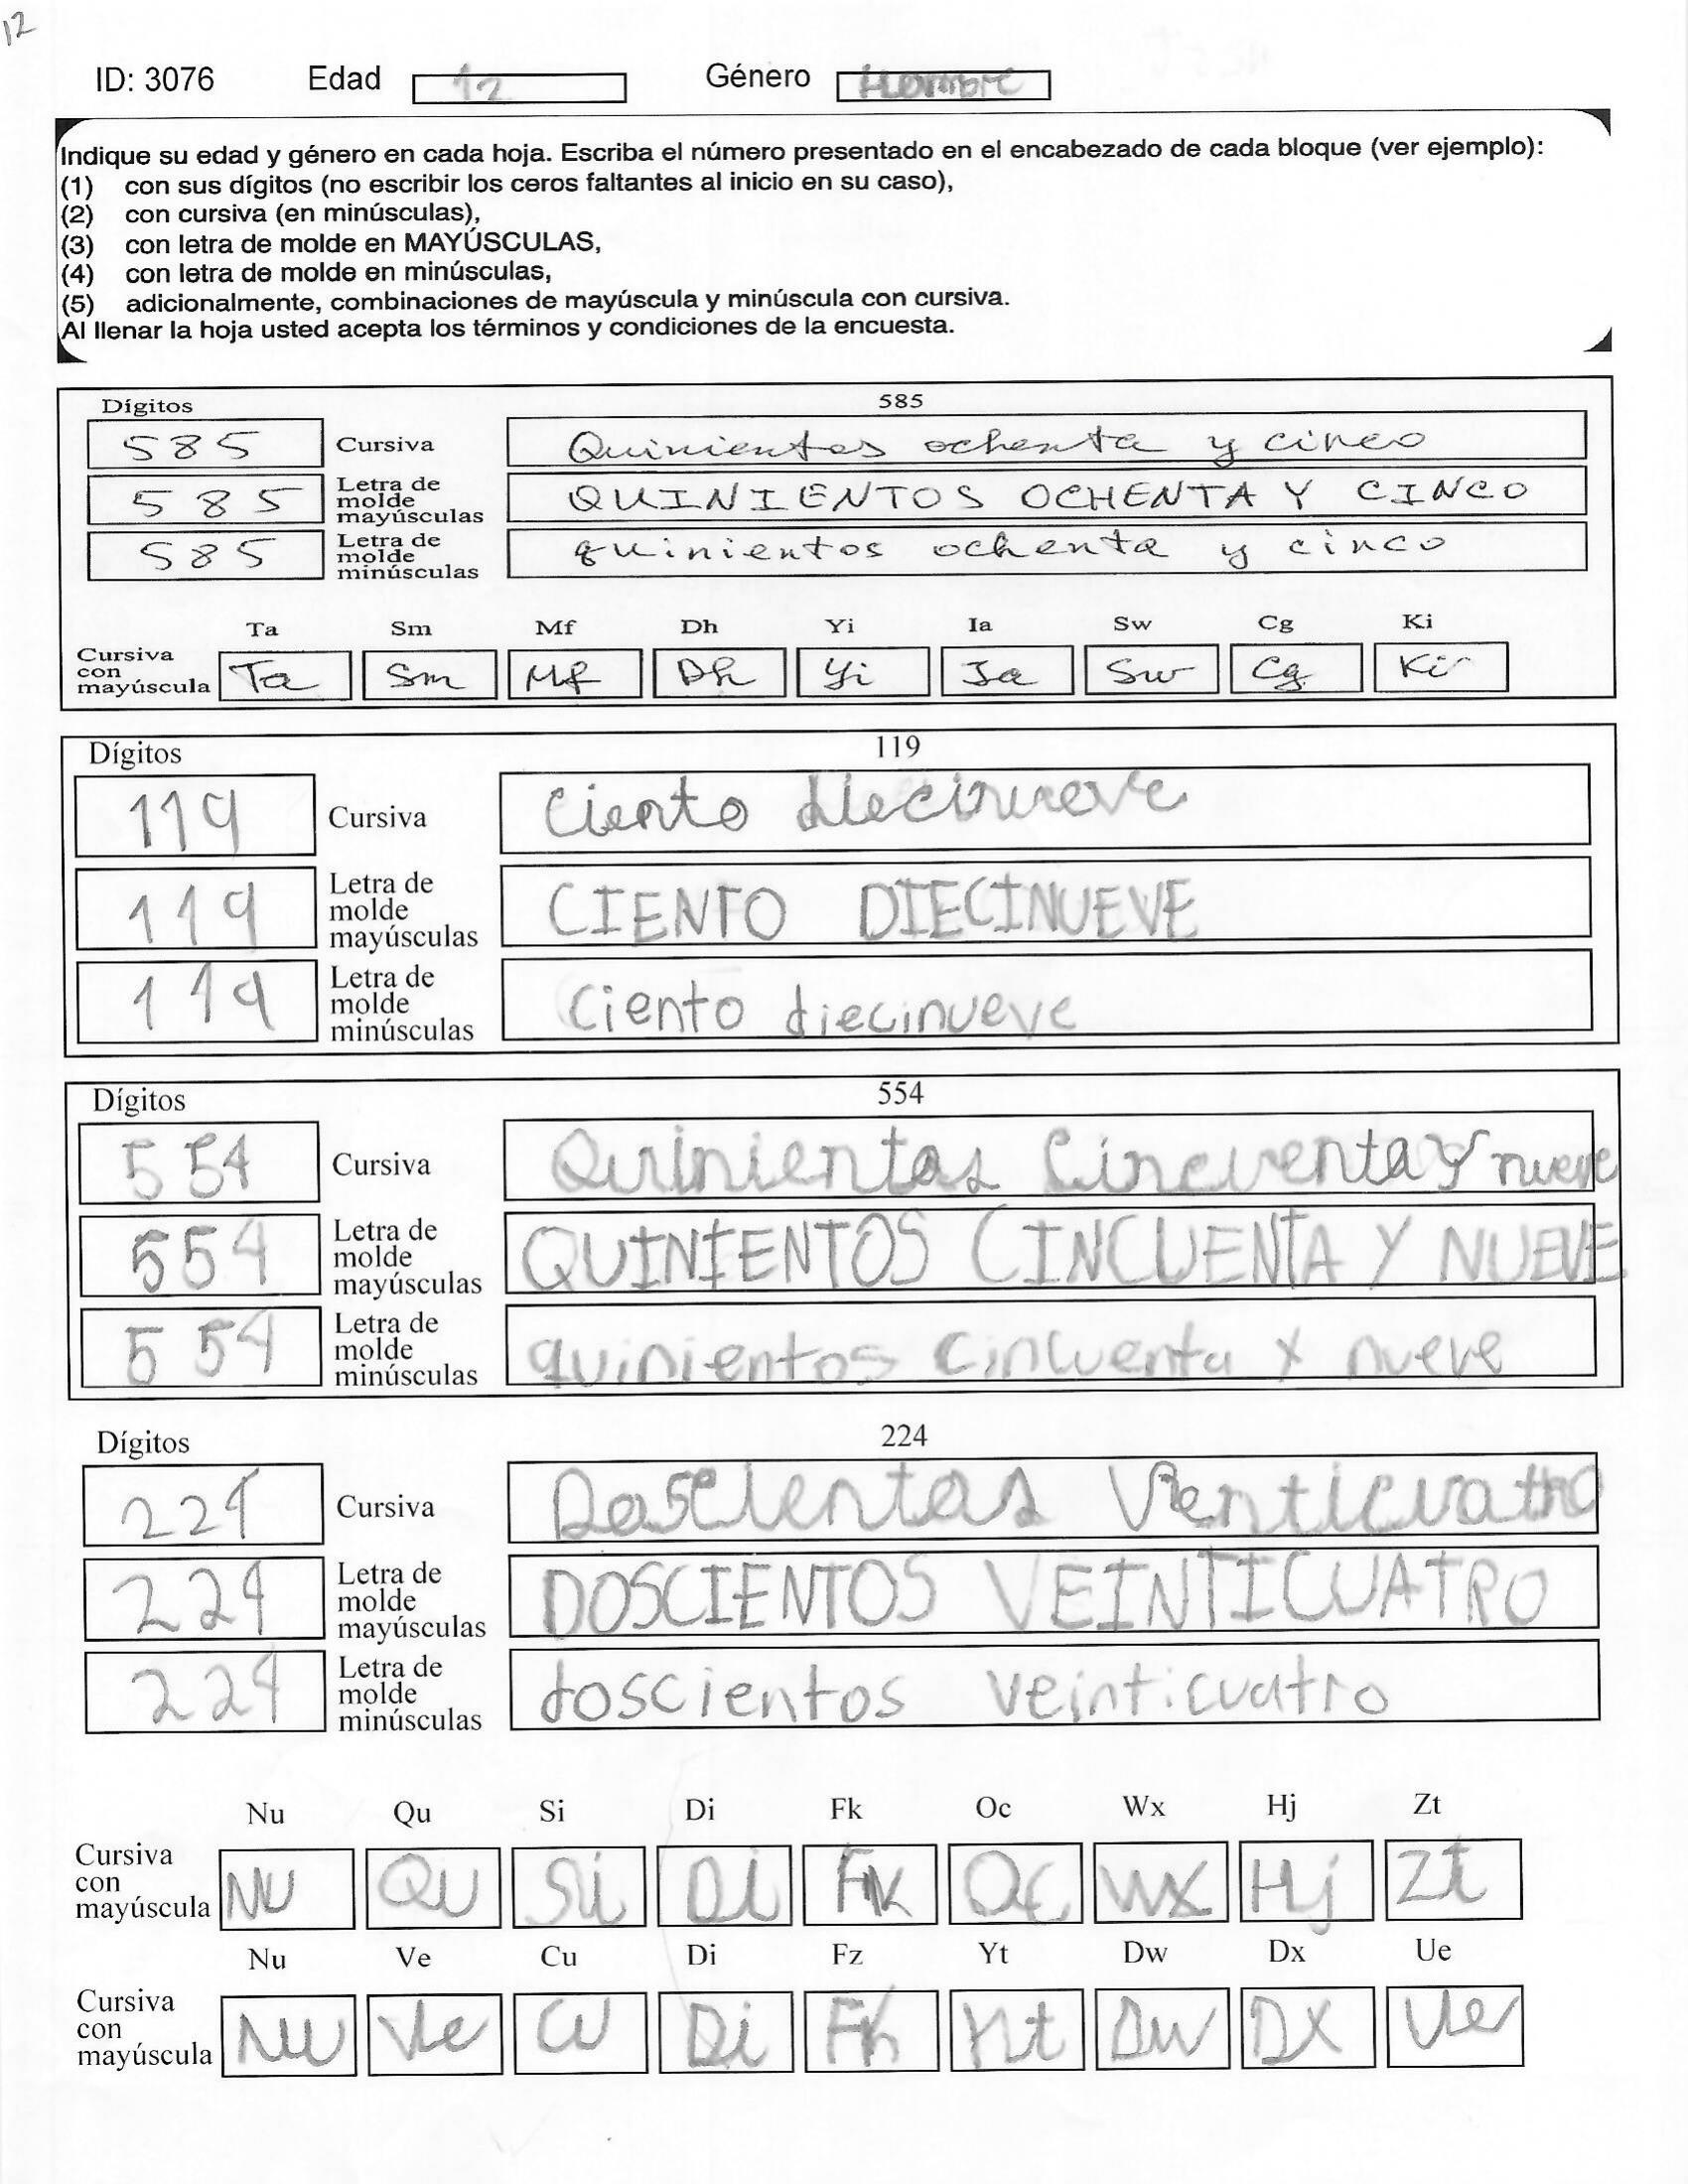 12
ID: 3076 Edad 12 Género Hombre
Indique su edad y género en cada hoja. Escriba el número presentado en el encabezado de cada bloque (ver ejemplo):
(1) con sus dígitos (no escribir los ceros faltantes al inicio en su caso),
(2) con cursiva (en minúsculas),
(3) con letra de molde en MAYÚSCULAS,
(4) con letra de molde en minúsculas,
(5) adicionalmente, combinaciones de mayúscula y minúscula con cursiva.
Al llenar la hoja usted acepta los términos y condiciones de la encuesta.
Dígitos 585
585 Cursiva Quinientos ochenta y cinco
585 Letra de molde mayúsculas QUINIENTOS OCHENTA Y CINCO
585 Letra de molde minúsculas quinientos ochenta y cinco
Ta Sm Mf Dh Yi Ia Sw Cg Ki
Cursiva con mayúscula Ta Sm Mf Dh Yi Ia Sw Cg Ki
Dígitos 119
119 Cursiva Ciento diecinueve
119 Letra de molde mayúsculas CIENTO DIECINUEVE
119 Letra de molde minúsculas Ciento diecinueve
Dígitos 554
554 Cursiva Quinientos Cincuenta y nueve
554 Letra de molde mayúsculas QUINIENTOS CINCUENTA Y NUEVE
554 Letra de molde minúsculas quinientos cincuenta y nueve
Dígitos 224
224 Cursiva Doscientos Venticuatro
224 Letra de molde mayúsculas DOSCIENTOS VEINTICUATRO
224 Letra de molde minúsculas doscientos veinticuatro
Nu Qu Si Di Fk Oc Wx Hj Zt
Cursiva con mayúscula NU QU Si Di Fk Oc Wx Hj Zt
Nu Ve Cu Di Fz Yt Dw Dx Ue
Cursiva con mayúscula Nu Ve Cu Di Yt Dw Dx Ue